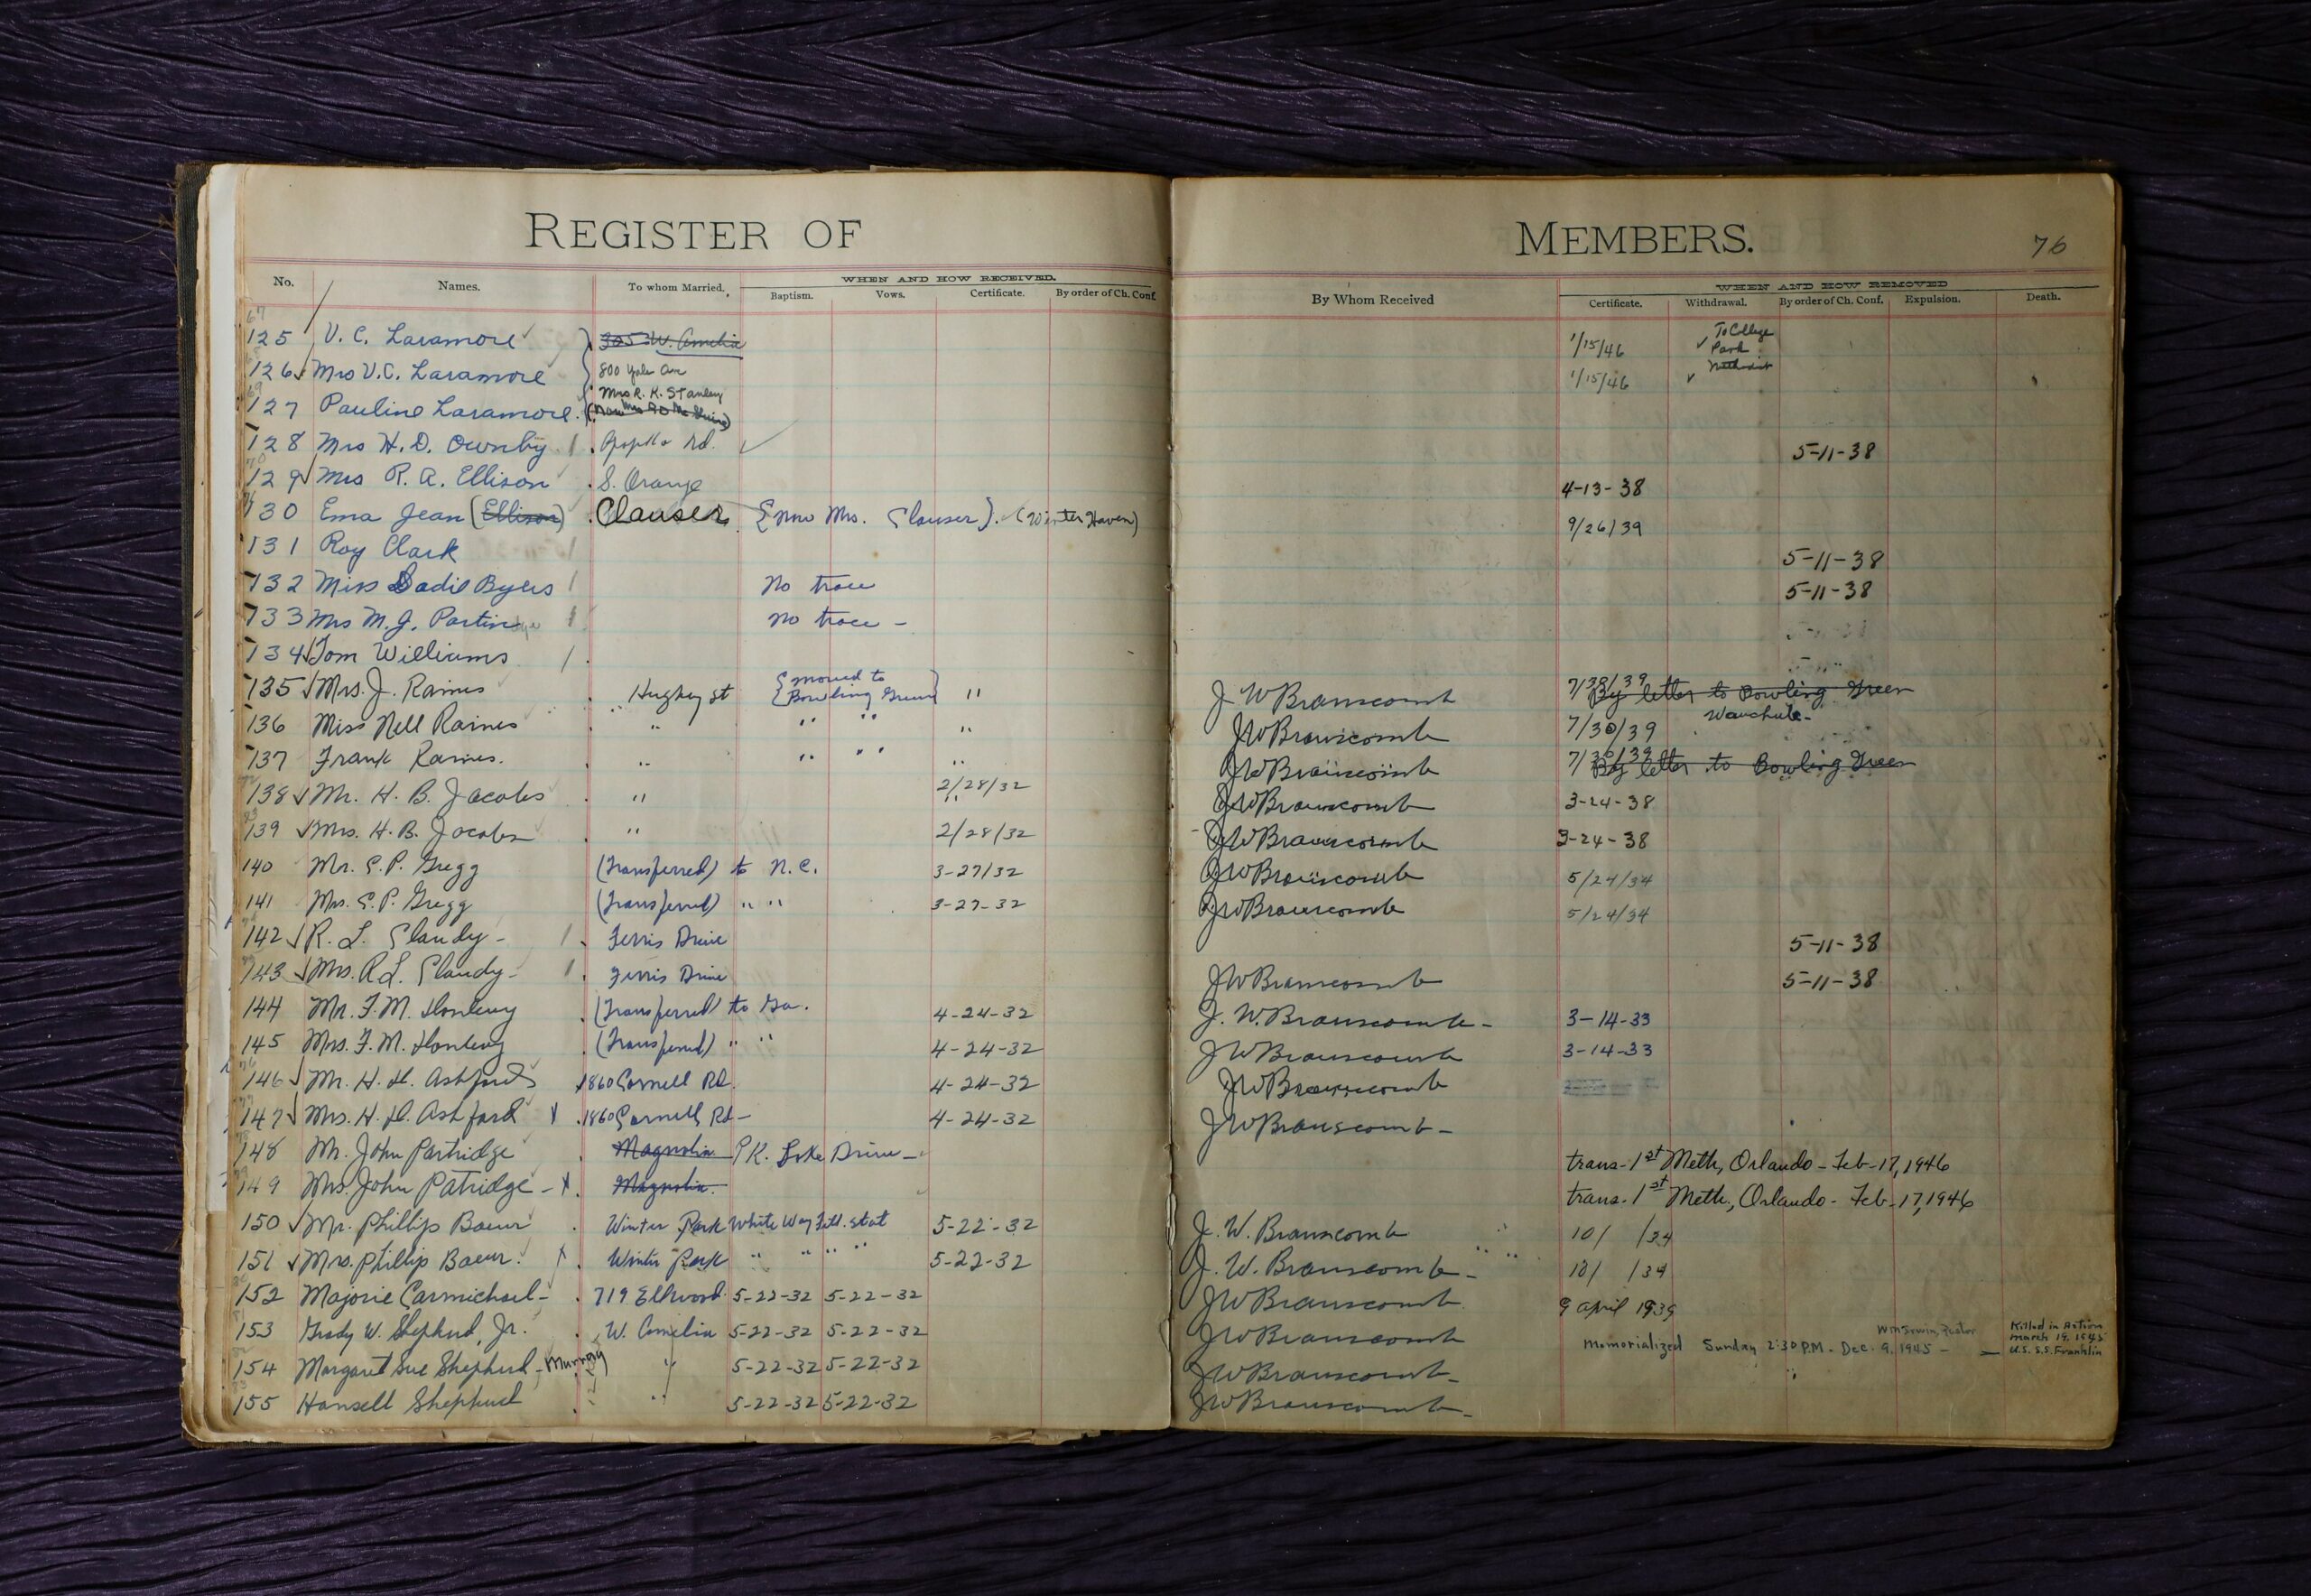 REGISTER OF MEMBERS. 76
No. Names. To whom Married. WHEN AND HOW RECEIVED. By Whom Received WHEN AND HOW REMOVED
Baptism. Vows. Certificate. By order of Ch. Conf. Certificate. Withdrawal. By order of Ch. Conf. Expulsion. Death.
125 V. C. Laramore 305 W. Amelia 1/15/46 To College
126 Mrs V. C. Laramore 800 Yale Ave 1/15/46 Park Methodist
127 Pauline Laramore Mrs R. K. Stanley
128 Mrs H. D. Ownby Rd. 5-11-38
129 Mrs R. A. Ellison S. Orange 4-13-38
130 Ema Jean (Ellison) Clauser {now Mrs. Clauser}. (Winter Haven) 9/26/39
131 Roy Clark 5-11-38
132 Miss Sadie Byers No trace 5-11-38
133 Mrs M. J. Partin No trace -
134 Tom Williams
135 Mrs. J. Raines Hughey St {moved to Bowling Green} " J W Branscomb 7/30/39 By letter to Bowling Green
136 Miss Nell Raines " " " " J W Branscomb 7/30/39 Wauchula-
137 Frank Raines. " " " " J W Branscomb 7/30/39 By letter to Bowling Green
138 Mr. H. B. Jacobs " 2/28/32 J W Branscomb 3-24-38
139 Mrs. H. B. Jacobs " 2/28/32 J W Branscomb 3-24-38
140 Mr. E. P. Gregg (Transferred) to N.C. 3-27/32 J W Branscomb 5/24/34
141 Mrs. E. P. Gregg (Transferred) " " 3-27-32 J W Branscomb 5/24/34
142 R. L. Clandy - Ferris Drive 5-11-38
143 Mrs. R L. Clandy - Ferris Drive J W Branscomb 5-11-38
144 Mr. F. M. (Transferred) to Ga. 4-24-32 J. W. Branscomb - 3-14-33
145 Mrs. F. M. (Transferred) " " 4-24-32 J W Branscomb 3-14-33
146 Mr. H. H. Ashford 1860 Cornell Rd. 4-24-32 J W Branscomb
147 Mrs. H. H. Ashford x 1860 Cornell Rd - 4-24-32 J W Branscomb -
148 Mr. John Partridge Magnolia PK. Lake Drive - trans- 1st Meth, Orlando - Feb-17, 1946
149 Mrs. John Patridge - x Magnolia. trans- 1st Meth., Orlando - Feb-17, 1946
150 Mr. Phillip Baeur Winter Park White Way Fill. Stat 5-22-32 J. W. Branscomb 10/ /34
151 Mrs. Phillip Baeur. x Winter Park " " " " 5-22-32 J. W. Branscomb - 10/ /34
152 Majorie Carmichael - 719 Ellwood 5-22-32 5-22-32 J W Branscomb 9 April 1939
153 Grady W. Shepherd, Jr. W. Amelia 5-22-32 5-22-32 J W Branscomb Memorialized Sunday 2:30 P.M. - Dec. 9, 1945 - Wm Irwin, Pastor Killed in Action March 19, 1945 U.S.S.S. Franklin
154 Margaret Sue Shepherd - Murray " 5-22-32 5-22-32 J W Branscomb -
155 Hansell Shepherd " 5-22-32 5-22-32 J W Branscomb -